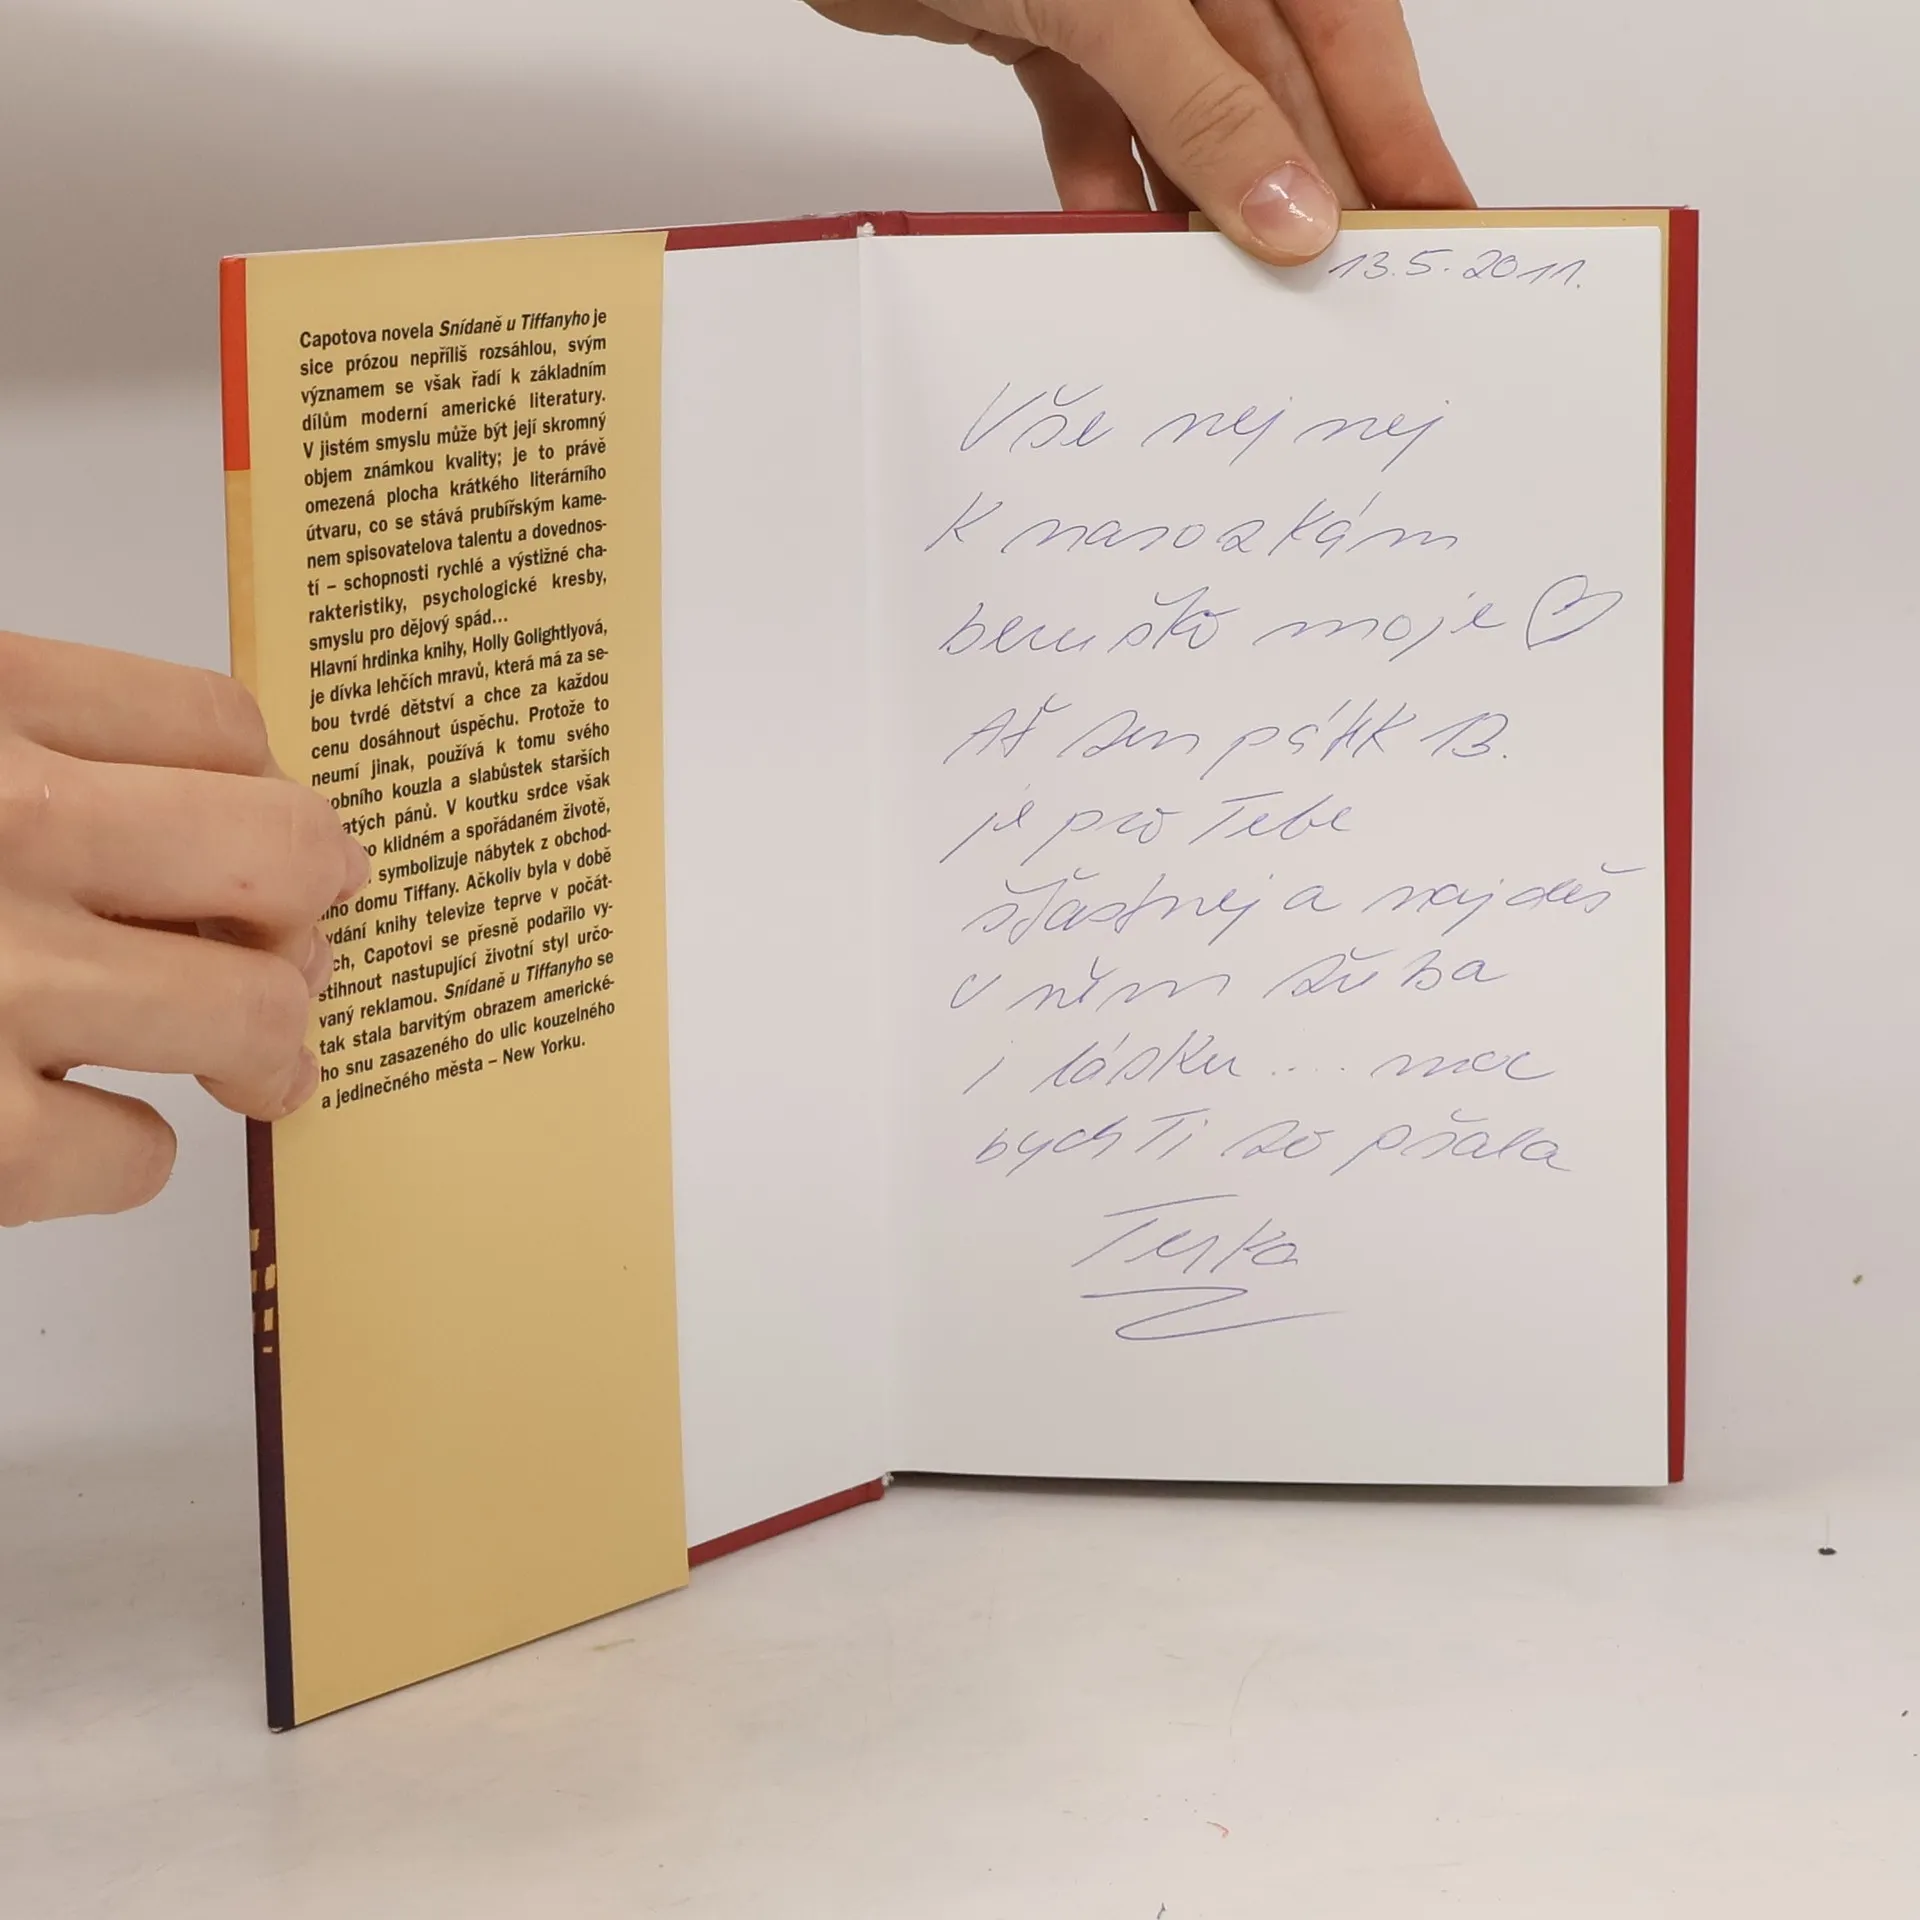 Capotova novela Snídaně u Tiffanyho je
sice prózou nepříliš rozsáhlou, svým
významem se však řadí k základním
dílům moderní americké literatury.
V jistém smyslu může být její skromný
objem známkou kvality; je to právě
omezená plocha krátkého literárního
útvaru, co se stává prubířským kame-
nem spisovatelova talentu a dovednos-
tí – schopnosti rychlé a výstižné cha-
rakteristiky, psychologické kresby,
smyslu pro dějový spád...
Hlavní hrdinka knihy, Holly Golightlyová,
je dívka lehčích mravů, která má za se-
bou tvrdé dětství a chce za každou
cenu dosáhnout úspěchu. Protože to
neumí jinak, používá k tomu svého
obního kouzla a slabůstek starších
atých pánů. V koutku srdce však
o klidném a spořádaném životě,
symbolizuje nábytek z obchod-
ního domu Tiffany. Ačkoliv byla v době
ydání knihy televize teprve v počát-
ch, Capotovi se přesně podařilo vy-
stihnout nastupující životní styl určo-
vaný reklamou. Snídaně u Tiffanyho se
tak stala barvitým obrazem americké-
ho snu zasazeného do ulic kouzelného
a jedinečného města – New Yorku.
13.5.2011.
Vše nej nej
K narozkám
beruško moje ♡
Ať ten pátek 13.
je pro Tebe
šťastnej a najdeš
v něm
i lásku .... moc
bych Ti to přála
Terka